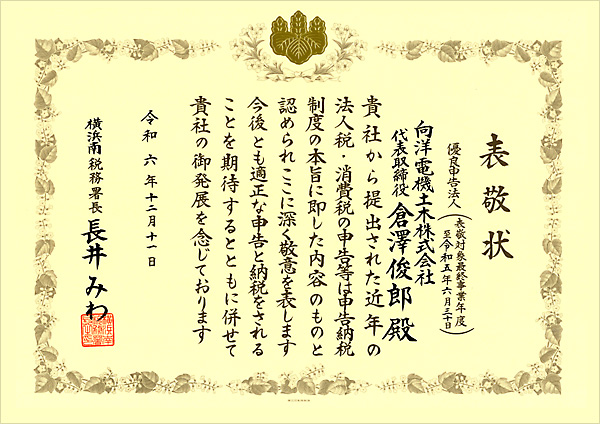 表敬状
優良申告法人(表敬対象最終事業年度
至令和五年六月三十日)
向洋電機土木株式会社
代表取締役 倉澤俊郎 殿
貴社から提出された近年の
法人税・消費税の申告等は申告納税
制度の本旨に即した内容のものと
認められここに深く敬意を表します
今後とも適正な申告と納税をされる
ことを期待するとともに併せて
貴社の御発展を念じております
令和六年十二月十一日
横浜南税務署長 長井みわ